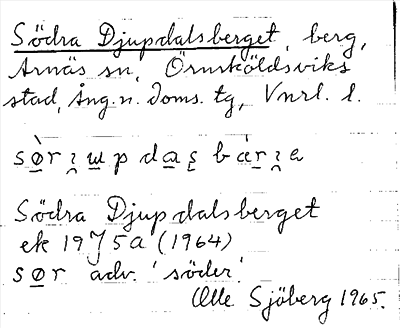 Södra Djupdalsberget, berg,
Arnäs sn, Örnsköldsviks
stad, Ång. n. doms. tg, Vnrl. l.
Södra Djupdalsberget
ek 19J5a (1964)
sør adv. 'söder'.
Olle Sjöberg 1965.